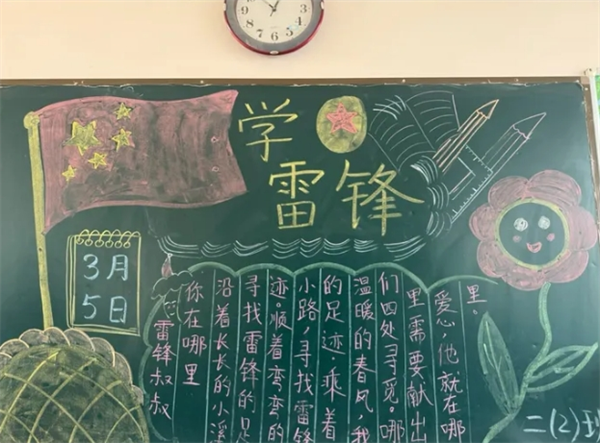 学
雷锋
3月
5日
雷锋叔叔
你在哪里
沿着长长的小溪
寻找雷锋的足
迹。顺着弯弯的
小路，寻找雷锋
的足迹，乘着
温暖的春风，我
们四处寻觅。哪
里需要献出
爱心，他就在哪
里。
二(2)班